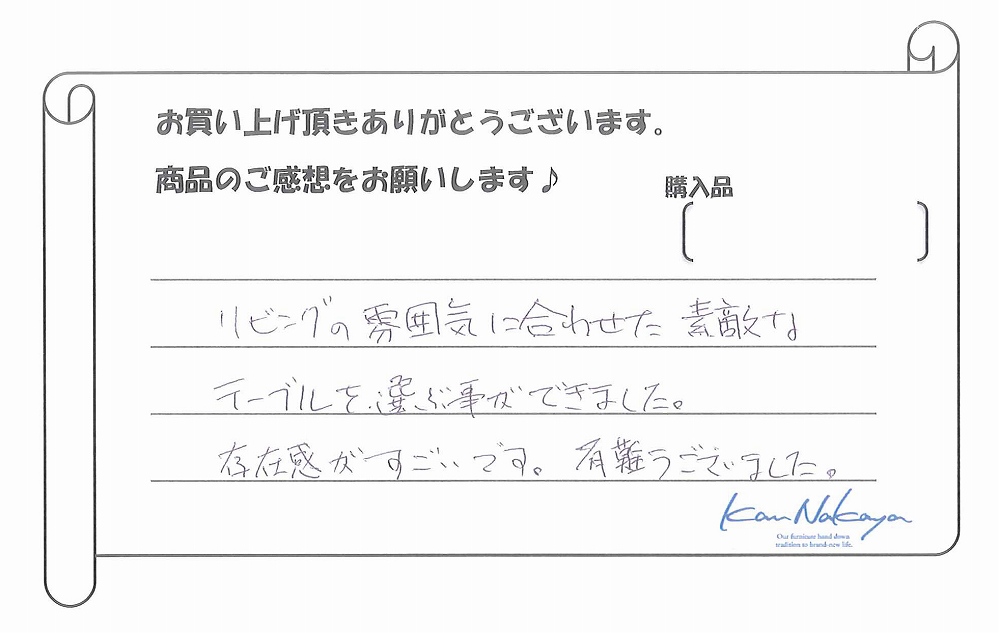 お買い上げ頂きありがとうございます。
商品のご感想をお願いします♪
購入品
リビングの雰囲気に合わせた素敵な
テーブルを選ぶ事ができました。
存在感がすごいです。有難うございました。
Kan Nakaya
Our furniture hand down
tradition to brand-new life.